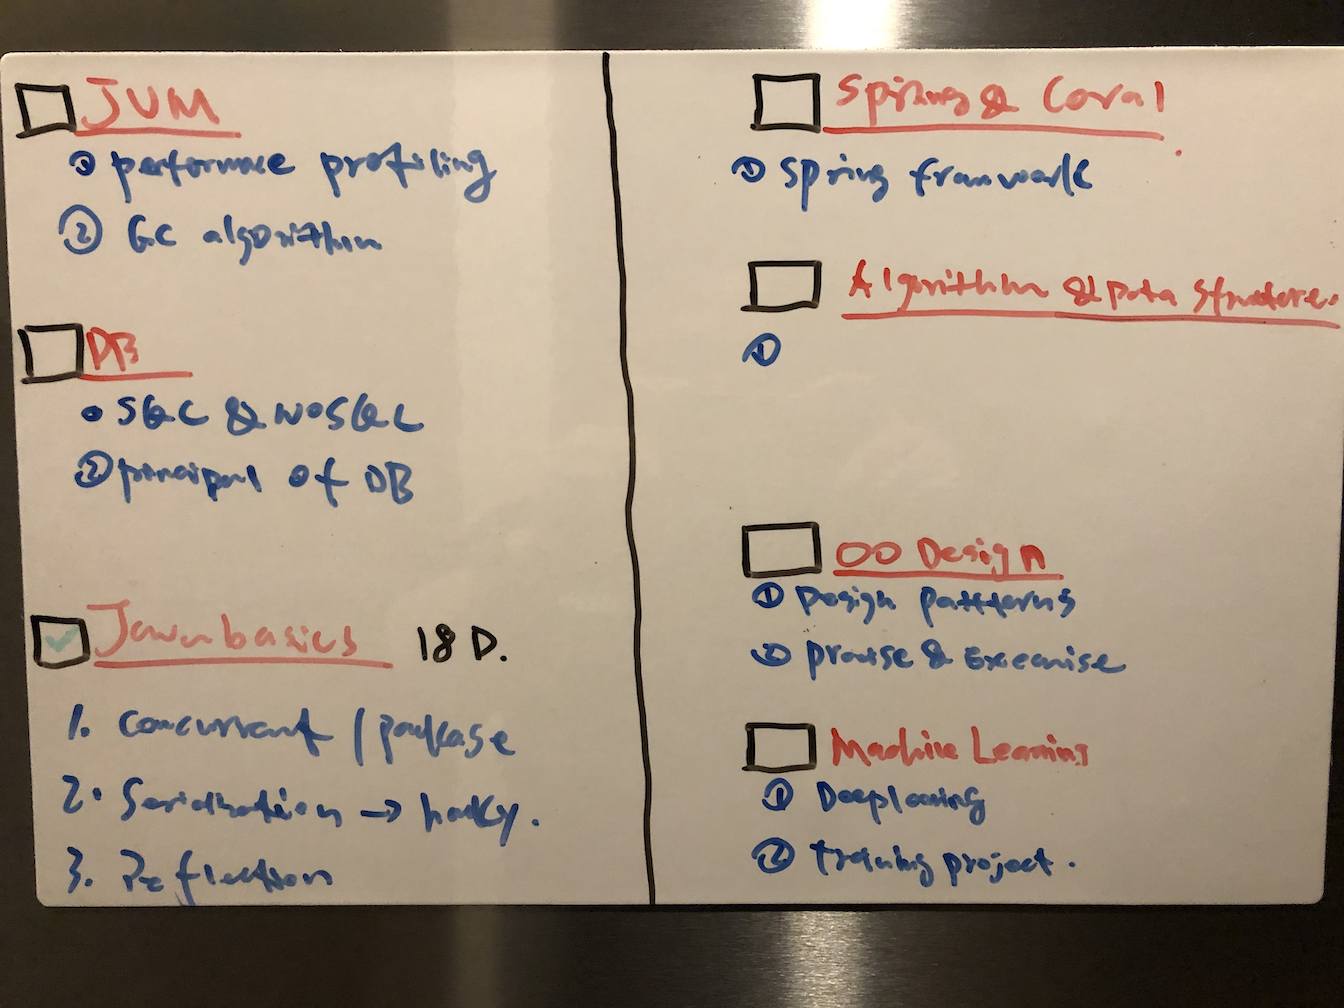 JVM
① performace profiling
② GC algorithm
DB
① SQL & NOSQL
② principal of DB
Java basics 18 D.
1. concurrent / package
2. Serialization →
3. Reflection
Spring & Coral
① Spring framwork
Algorithm & Data Structure.
①
OO Design
① Design patterns
② &
Machine Learning
① Deeplearning
② training project.